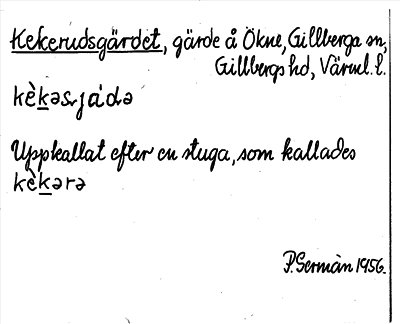 Kekerudsgärdet, gärde å Ökne, Gillberga sn,
Gillbergs hd, Värml. l.
kè̀kəsjáꞏdə
Uppkallat efter en stuga, som kallades
kè̀kərə
P. Germàn 1956.